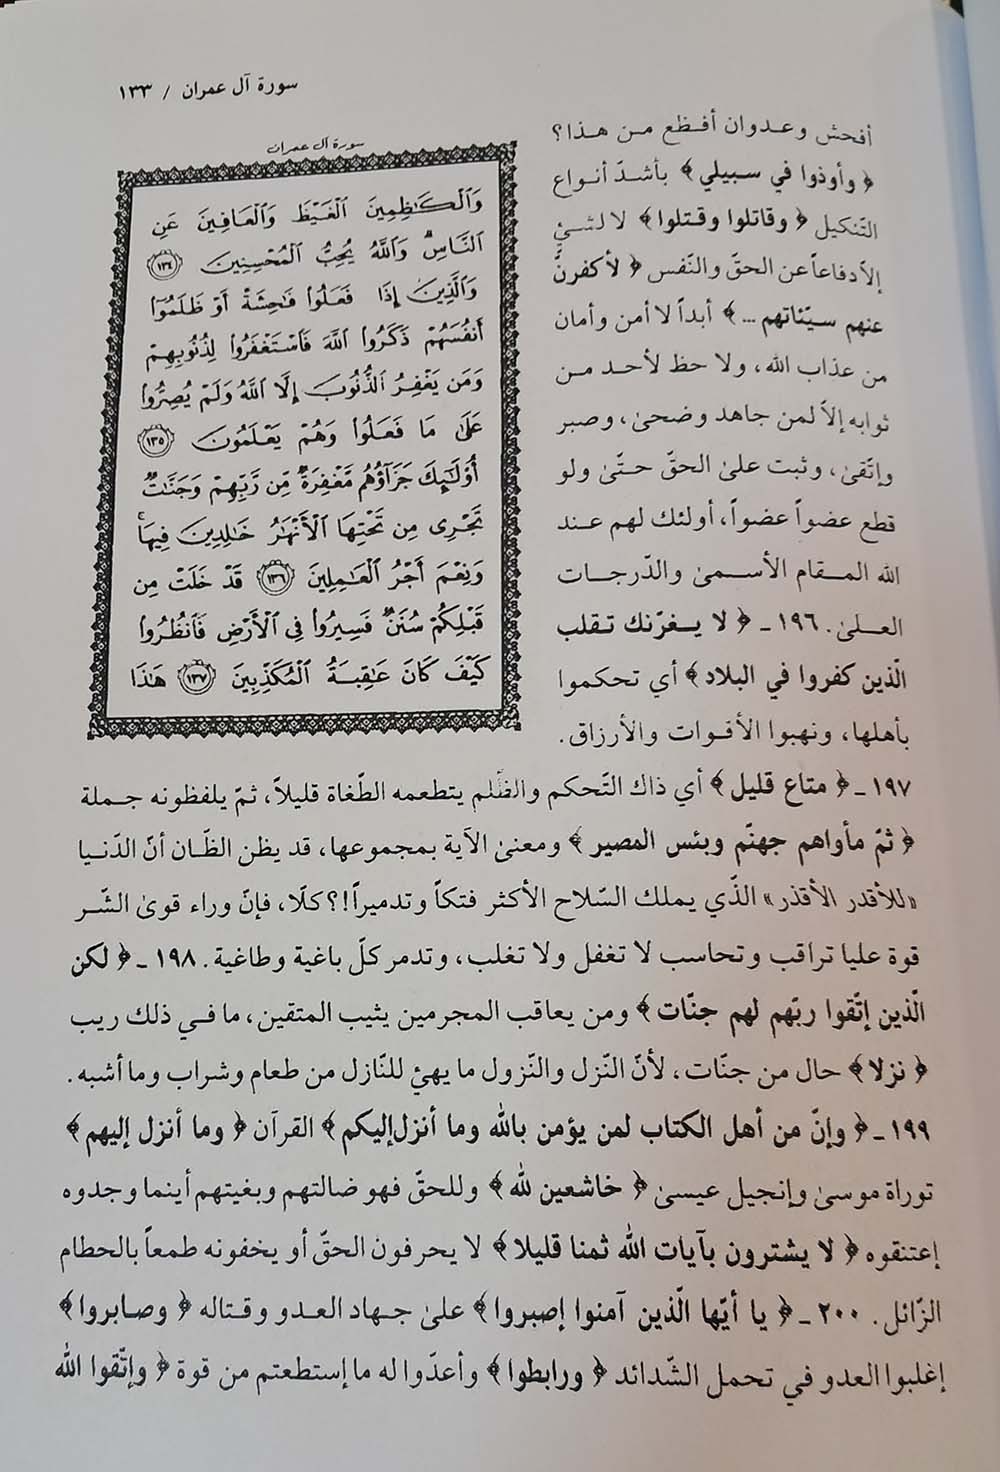 سورة آل عمران / ١٣٣
أفحش وعدوان أفظع من هذا؟
﴿ وأوذوا في سبيلي ﴾ بأشدّ أنواع
التّنكيل ﴿ وقاتلوا وقتلوا ﴾ لا لشئٍ
إلاّ دفاعاً عن الحقّ والنّفس ﴿ لأكفرنّ
عنهم سيّئاتهم ... ﴾ أبداً لا أمن وأمان
من عذاب الله، ولا حظ لأحد من
ثوابه إلاّ لمن جاهد وضحىٰ، وصبر
وإتّقىٰ، وثبت علىٰ الحقّ حتّىٰ ولو
قطع عضواً عضواً، أولئك لهم عند
الله المقام الأسمىٰ والدّرجات
العلىٰ. ١٩٦ ـ ﴿ لا يغرّنك تقلب
الّذين كفروا في البلاد ﴾ أي تحكموا
بأهلها، ونهبوا الأقوات والأرزاق.
سورة آل عمران
وَٱلْكَـٰظِمِينَ ٱلْغَيْظَ وَٱلْعَافِينَ عَنِ
ٱلنَّاسِ ۗ وَٱللَّهُ يُحِبُّ ٱلْمُحْسِنِينَ ١٣٤
وَٱلَّذِينَ إِذَا فَعَلُوا۟ فَـٰحِشَةً أَوْ ظَلَمُوٓا۟
أَنفُسَهُمْ ذَكَرُوا۟ ٱللَّهَ فَٱسْتَغْفَرُوا۟ لِذُنُوبِهِمْ
وَمَن يَغْفِرُ ٱلذُّنُوبَ إِلَّا ٱللَّهُ وَلَمْ يُصِرُّوا۟
عَلَىٰ مَا فَعَلُوا۟ وَهُمْ يَعْلَمُونَ ١٣٥
أُو۟لَـٰٓئِكَ جَزَآؤُهُم مَّغْفِرَةٌ مِّن رَّبِّهِمْ وَجَنَّـٰتٌ
تَجْرِى مِن تَحْتِهَا ٱلْأَنْهَـٰرُ خَـٰلِدِينَ فِيهَا ۚ
وَنِعْمَ أَجْرُ ٱلْعَـٰمِلِينَ ١٣٦ قَدْ خَلَتْ مِن
قَبْلِكُمْ سُنَنٌ فَسِيرُوا۟ فِى ٱلْأَرْضِ فَٱنظُرُوا۟
كَيْفَ كَانَ عَـٰقِبَةُ ٱلْمُكَذِّبِينَ ١٣٧ هَـٰذَا
١٩٧ ـ ﴿ متاع قليل ﴾ أي ذاك التّحكم والظّلم يتطعمه الطّغاة قليلاً، ثمّ يلفظونه جملة
﴿ ثمّ مأواهم جهنّم وبئس المصير ﴾ ومعنىٰ الآية بمجموعها، قد يظن الظّان أنّ الدّنيا
«للأقدر الأقذر» الذّي يملك السّلاح الأكثر فتكاً وتدميراً!؟ كلّا، فإنّ وراء قوىٰ الشّر
قوة عليا تراقب وتحاسب لا تغفل ولا تغلب، وتدمر كلّ باغية وطاغية. ١٩٨ ـ ﴿ لكن
الّذين إتّقوا ربّهم لهم جنّات ﴾ ومن يعاقب المجرمين يثيب المتقين، ما في ذلك ريب
﴿ نزلا ﴾ حال من جنّات، لأنّ النّزل والنّزول ما يهئ للنّازل من طعام وشراب وما أشبه.
١٩٩ ـ ﴿ وإنّ من أهل الكتاب لمن يؤمن بالله وما أنزل إليكم ﴾ القرآن ﴿ وما أنزل إليهم ﴾
توراة موسىٰ وإنجيل عيسىٰ ﴿ خاشعين لله ﴾ وللحقّ فهو ضالتهم وبغيتهم أينما وجدوه
إعتنقوه ﴿ لا يشترون بآيات الله ثمنا قليلا ﴾ لا يحرفون الحقّ أو يخفونه طمعاً بالحطام
الزّائل. ٢٠٠ ـ ﴿ يا أيّها الّذين آمنوا إصبروا ﴾ علىٰ جهاد العدو وقتاله ﴿ وصابروا ﴾
إغلبوا العدو في تحمل الشّدائد ﴿ ورابطوا ﴾ وأعدّوا له ما إستطعتم من قوة ﴿ وإتّقوا الله